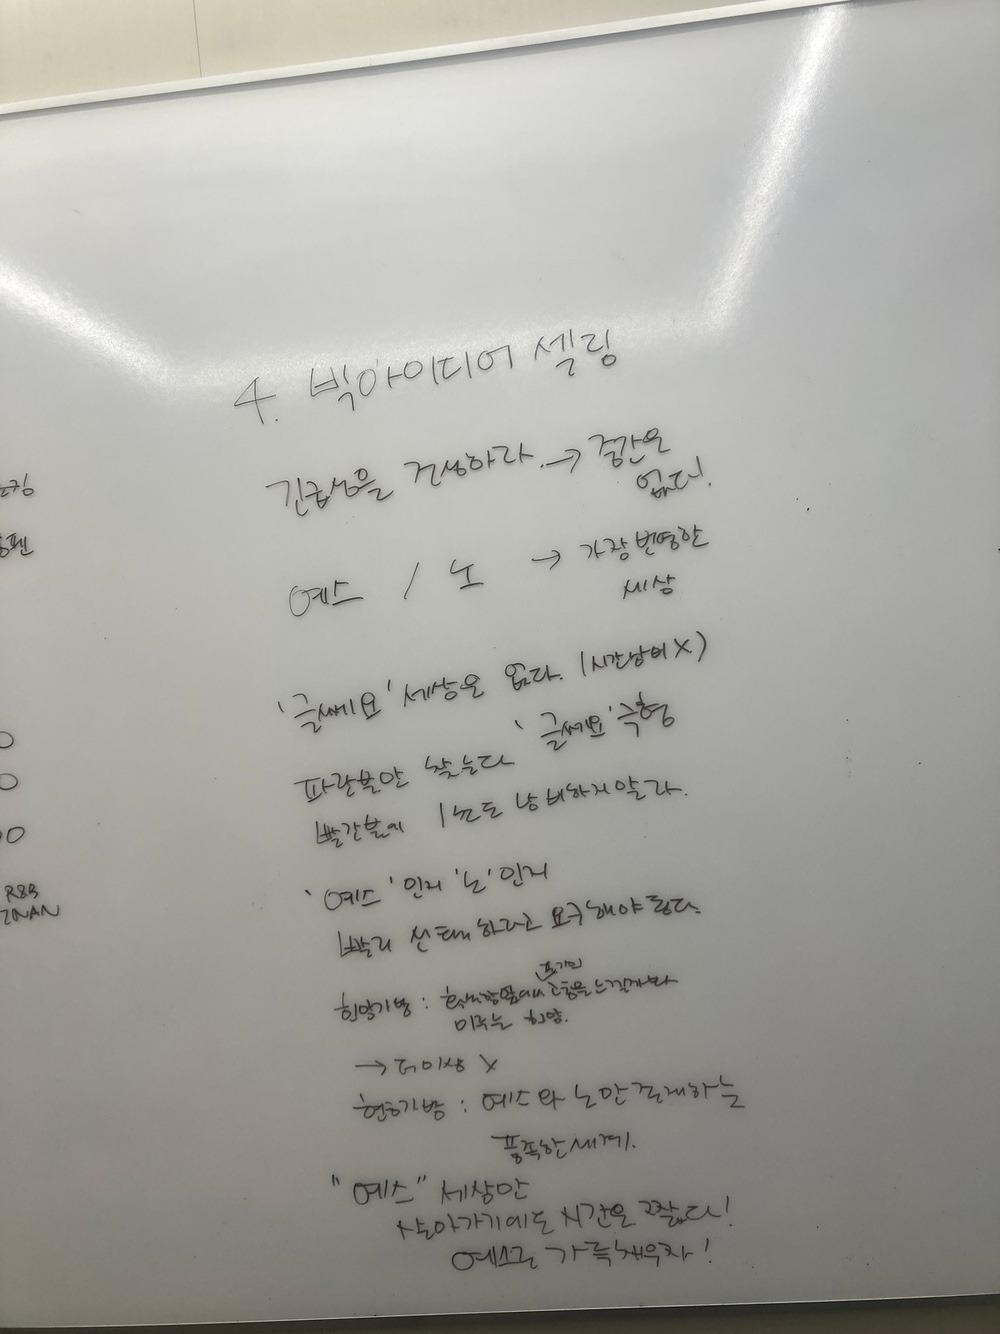 4. 빅아이디어 셀링
긴급성을 건설하라. → 중간은
없다!
예스 / 노 → 가장 번영한
세상
'글쎄요' 세상은 없다. (시간낭비 X)
파란불만 찾는다 '글쎄요' 극형
빨간불에 1분도 낭비하지말라.
'예스'인지 '노'인지
빨리 선택하라고 요구해야 된다.
포기의
희망기병 : 고통을 느낄까봐
미루는 희망.
→ 더이상 X
현찰기병 : 예스와 노만 존재하는
풍족한 세계.
"예스" 세상만
살아가기에도 시간은 짧다!
예스로 가득채우자!
R&B